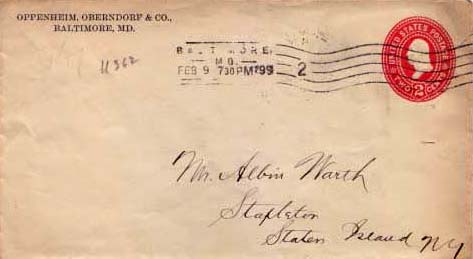 OPPENHEIM, OBERNDORF & CO.,
BALTIMORE, MD.
11362
BALTIMORE,
MD.
FEB 9 730PM '99
2
UNITED STATES POSTAGE
TWO 2 CENTS
Mr. Albin Warth
Stapleton
Staten Island NY